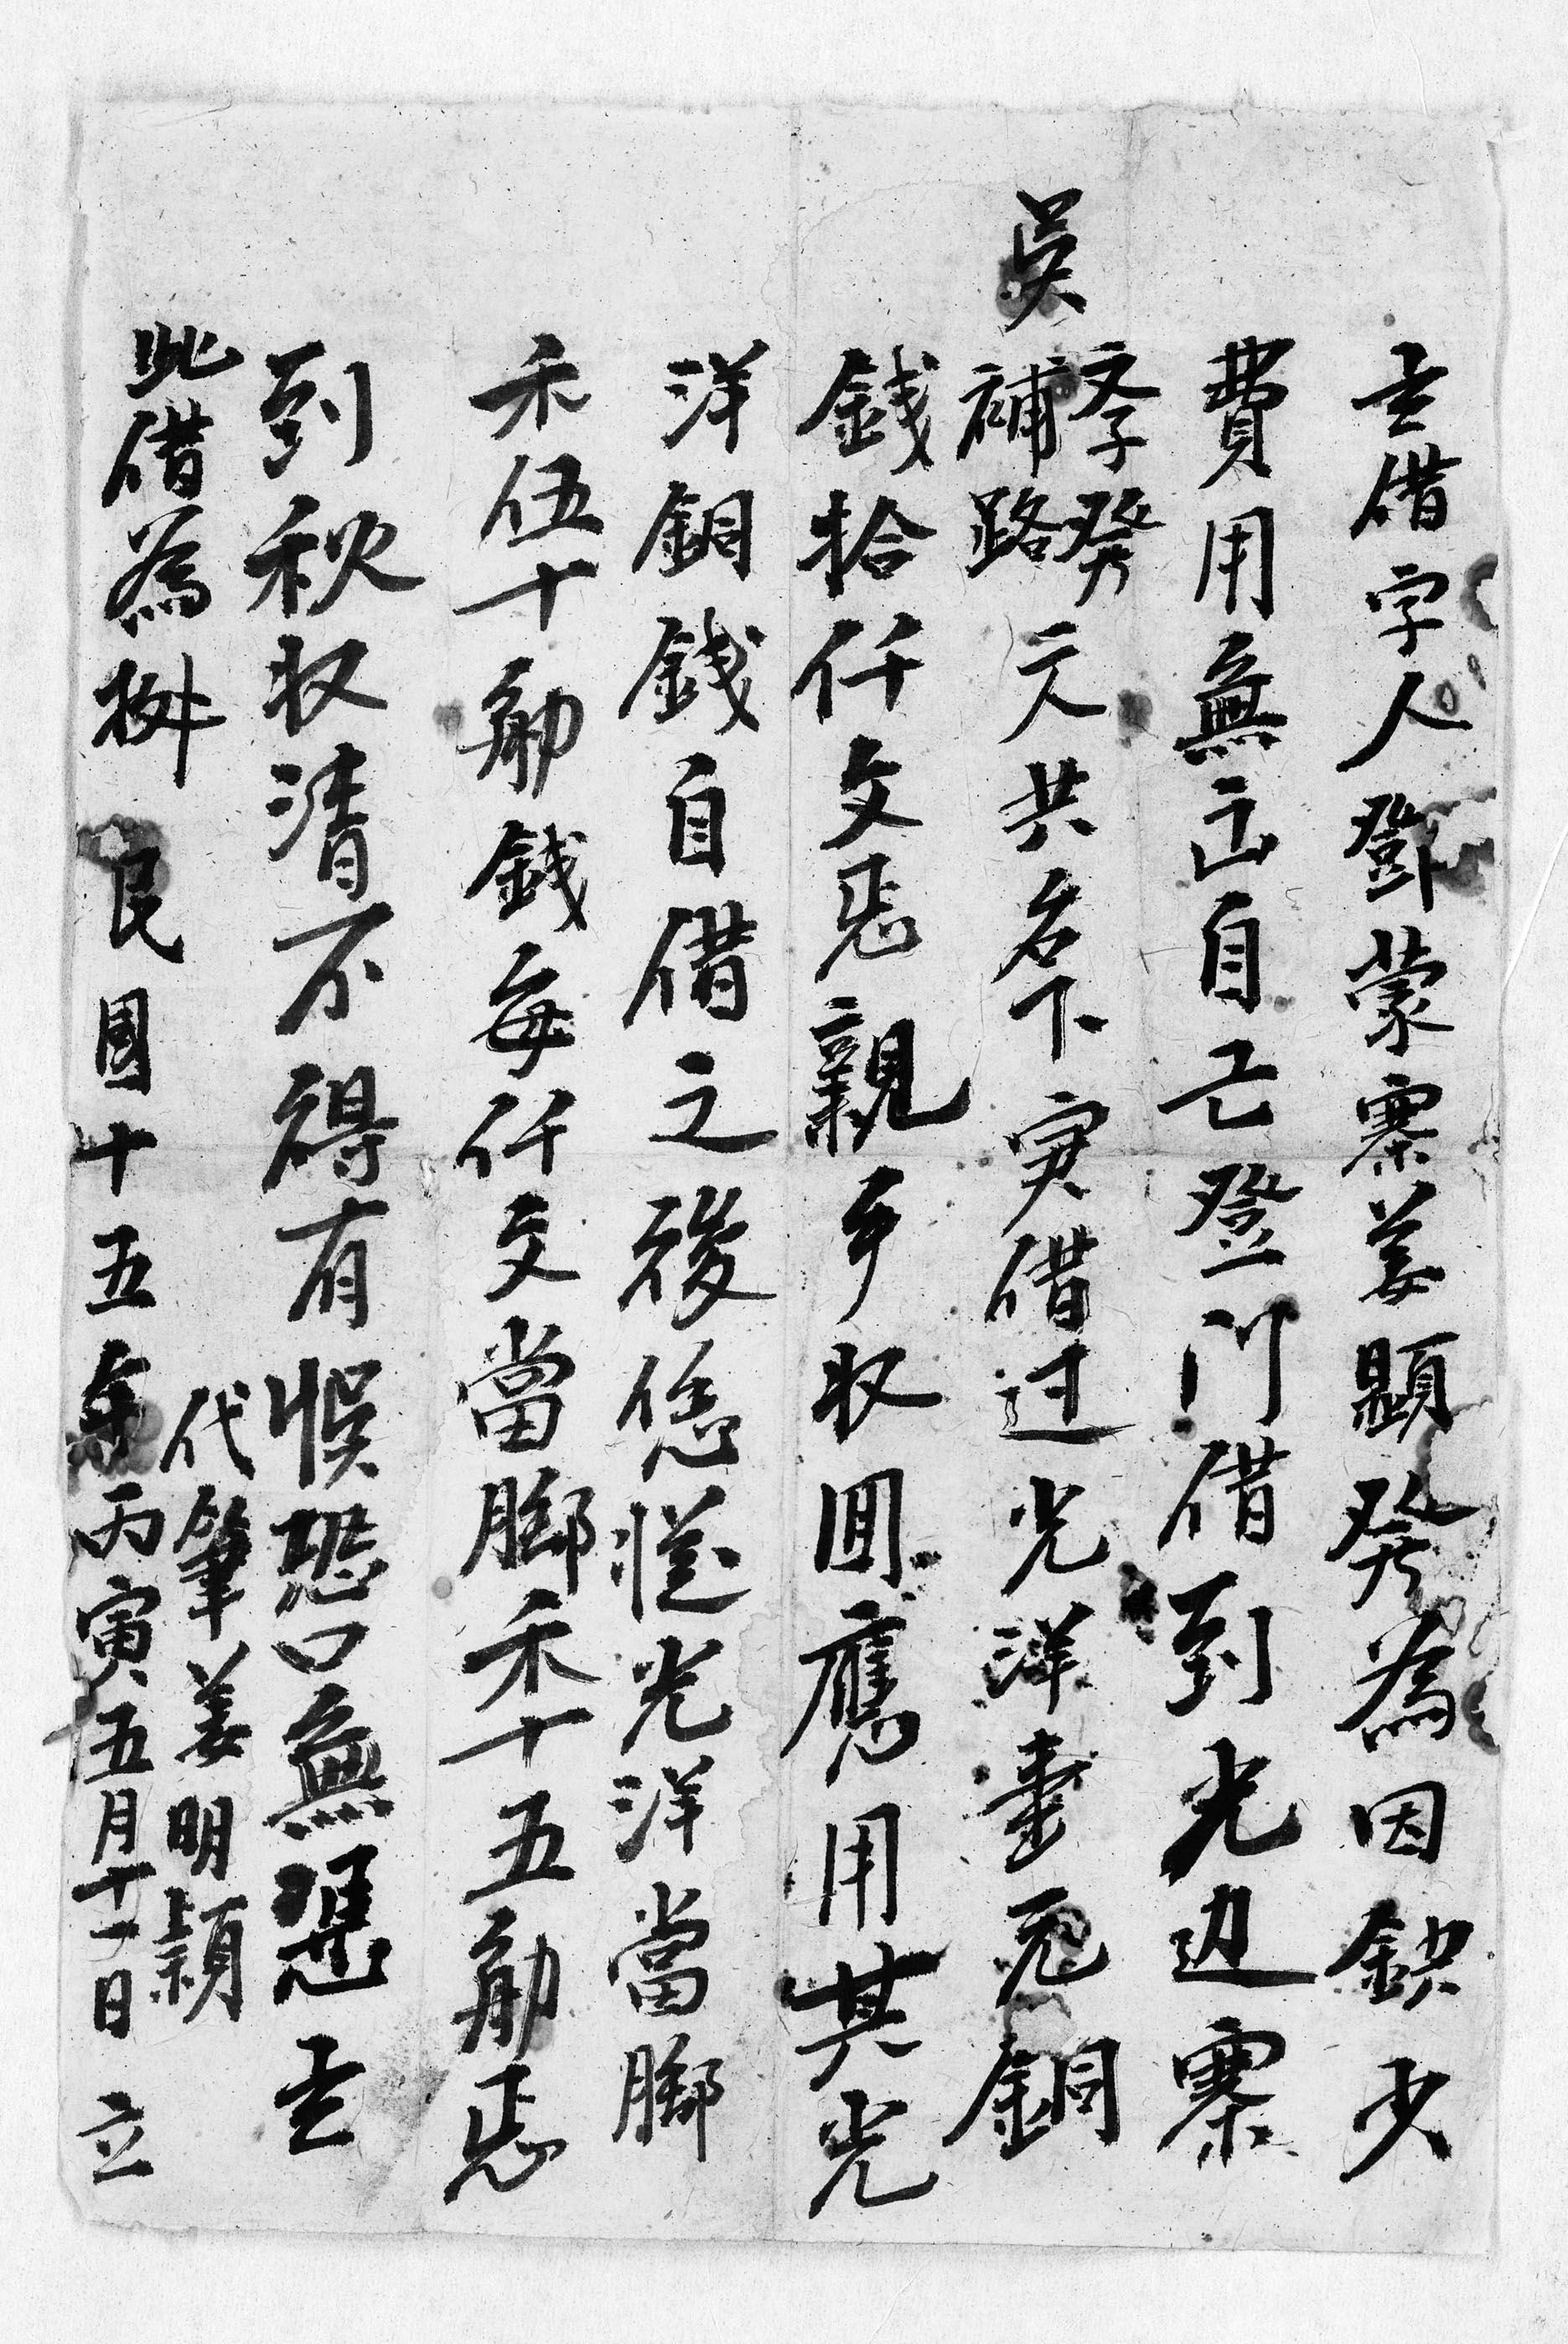 立借字人鄧蒙寨姜顯發為因缺少
費用無出自己登門借到光边寨
吴
李發
補路
二人共名下实借过光洋壹元銅
錢拾仟文恁親手收回應用其光
洋銅錢自借之後恁光洋當脚
禾伍十觔錢每仟文當脚禾十五觔恁
到秋收清不得有悞恐口無憑立
此借為㨿
代筆姜明穎
民國十五年丙寅五月十一日立